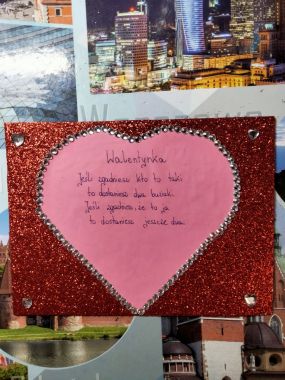 Walentynka
Jeśli zgadniesz kto to taki
to dostaniesz dwa buziaki.
Jeśli zgadniesz, że to ja
to dostaniesz jeszcze dwa.